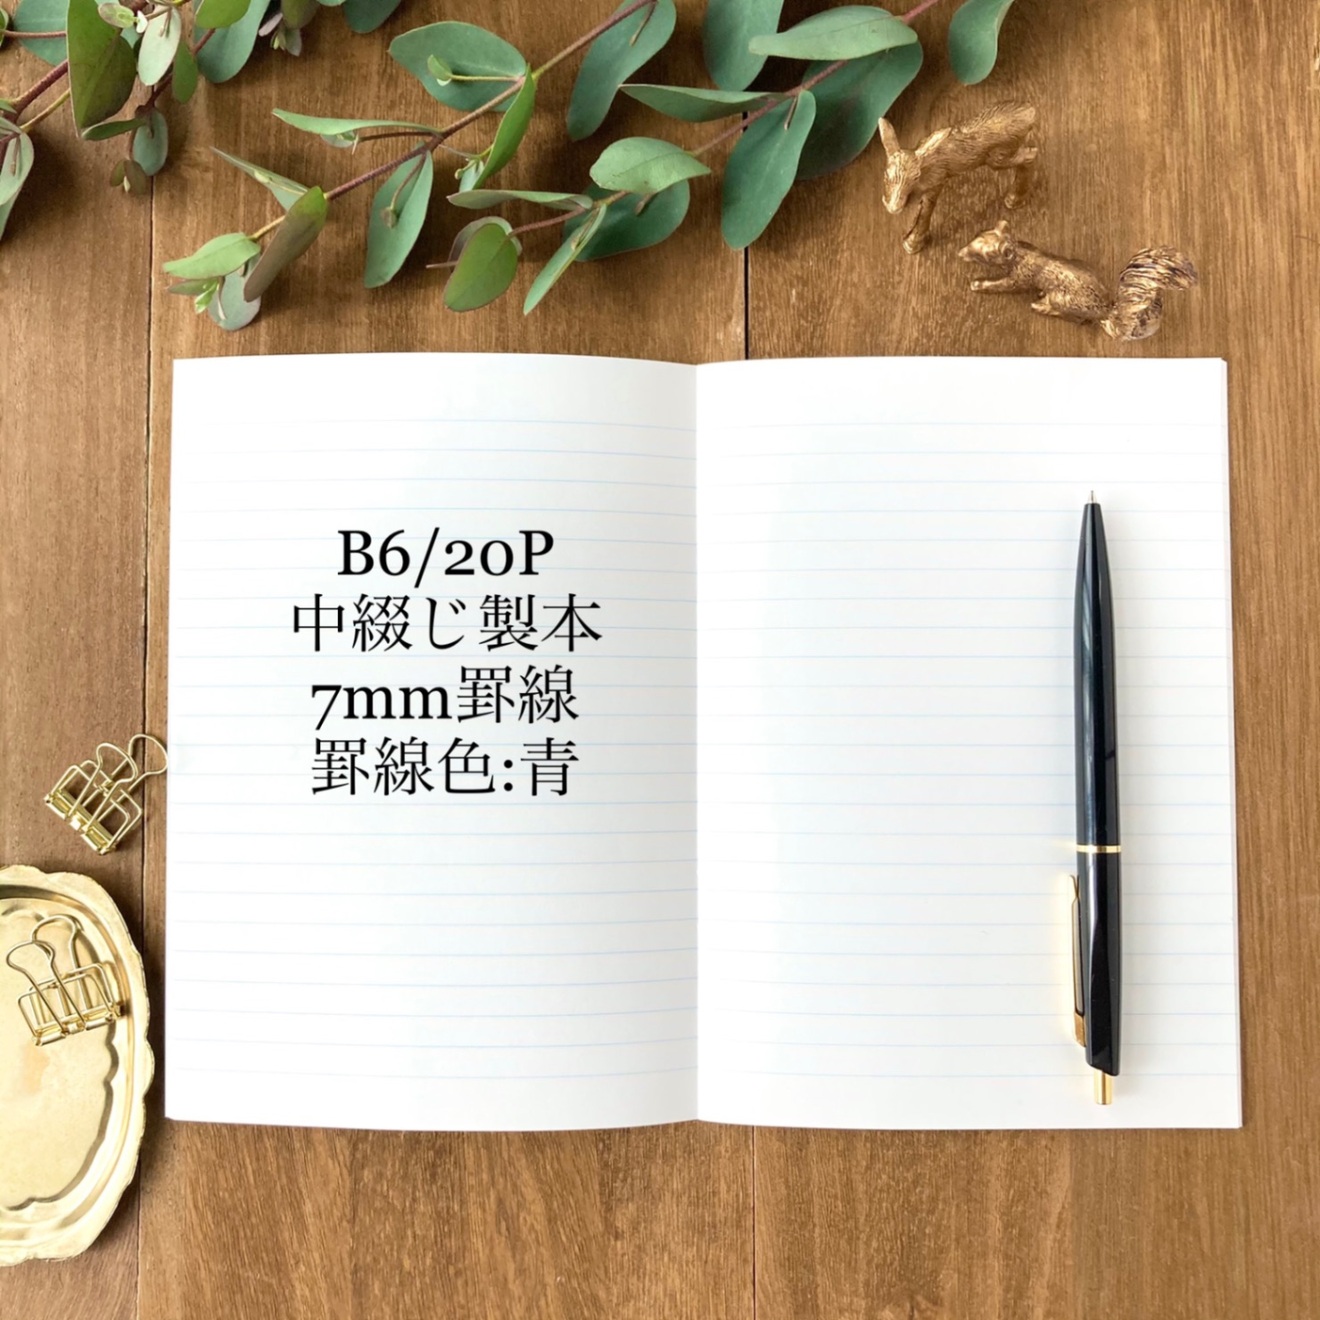 B6/20P
中綴じ製本
7mm罫線
罫線色:青